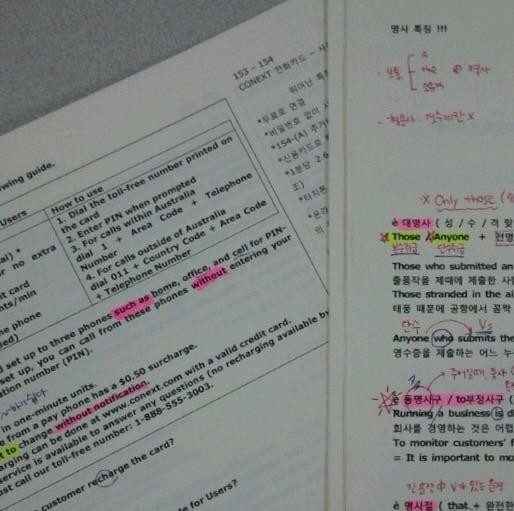 153 - 154
CONEXT 전화카드 -
뛰어난
*무료로 연결
*비밀번호 없이
*154-(A)
*신용카드로
*1분당 2.6
조)
owing guide.
Users
How to use
1. Dial the toll-free number printed on
the card
2. Enter PIN when prompted
3. For calls within Australia
dial 1 + Area Code + Telephone
Number
4. For calls outside of Australia
dial 011 + Country Code + Area Code
+ Telephone Number
or no extra
it card
nts/min
ne phone
d set up to three phones such as home, office, and cell for PIN-
set up, you can call from these phones without entering your
ation number (PIN).
in one-minute units.
from a pay phone has a $0.50 surcharge.
t to change without notification.
arging can be done at www.conext.com with a valid credit card.
service is available to answer any questions (no recharging available
ast call our toll-free number: 1-888-555-3003.
customer recharge the card?
le for Users?
명사 특징 !!!
보통
a
the
소유격
명사
Only those
è 대명사 ( 성 / 수 / 격
Those / Anyone +
복수취급
단수취급
Those who submitted an
출품작을 제때에 제출한
Those stranded in the ai
태풍 때문에 공항에서 꼼짝
단수
Vs
Anyone who submits the
영수증을 제출하는 어느
è 동명사구 / to부정사구 (
Running a business is di
회사를 경영하는 것은 어렵
To monitor customers' f
= It is important to mo
è 명사절 ( that + 완전한